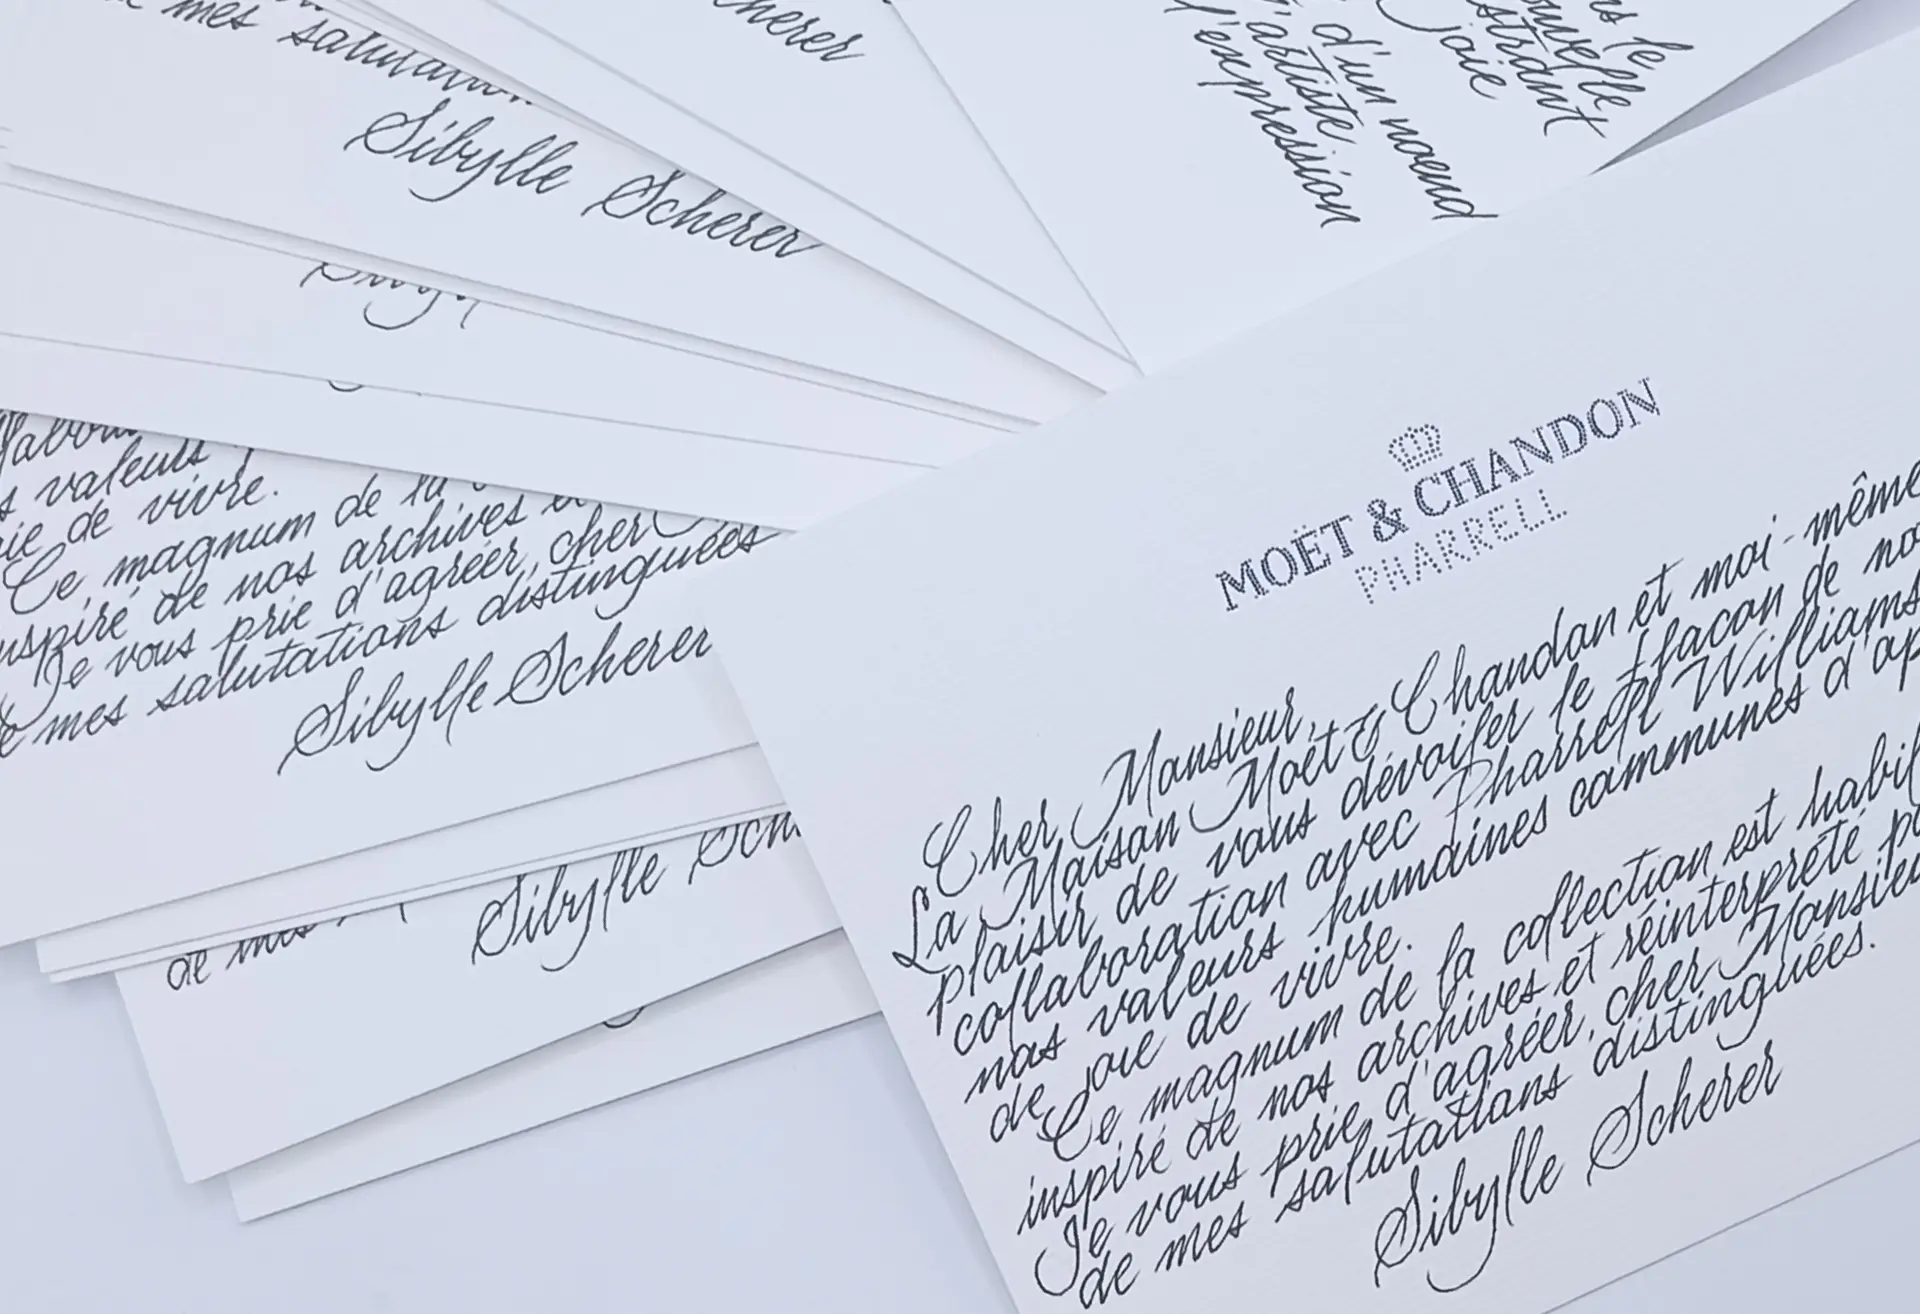 de mes salutations
Sibylle Scherer
cherer
le
nouvelle
joie
d'un noeud
d'artiste
l'expression
valeurs
de vivre.
Ce magnum de la
inspiré de nos archives et
Je vous prie d'agréer, cher
de mes salutations distinguées
Sibylle Scherer
de mes
Sibylle
MOËT & CHANDON
PHARRELL
Cher Monsieur,
La Maison Moët & Chandon et moi-même
plaisir de vous dévoiler le flacon de
collaboration avec Pharrell Williams
nos valeurs humaines communes
de joie de vivre.
Ce magnum de la collection est
inspiré de nos archives et réinterprété
Je vous prie d'agréer, cher Monsieur
de mes salutations distinguées.
Sibylle Scherer